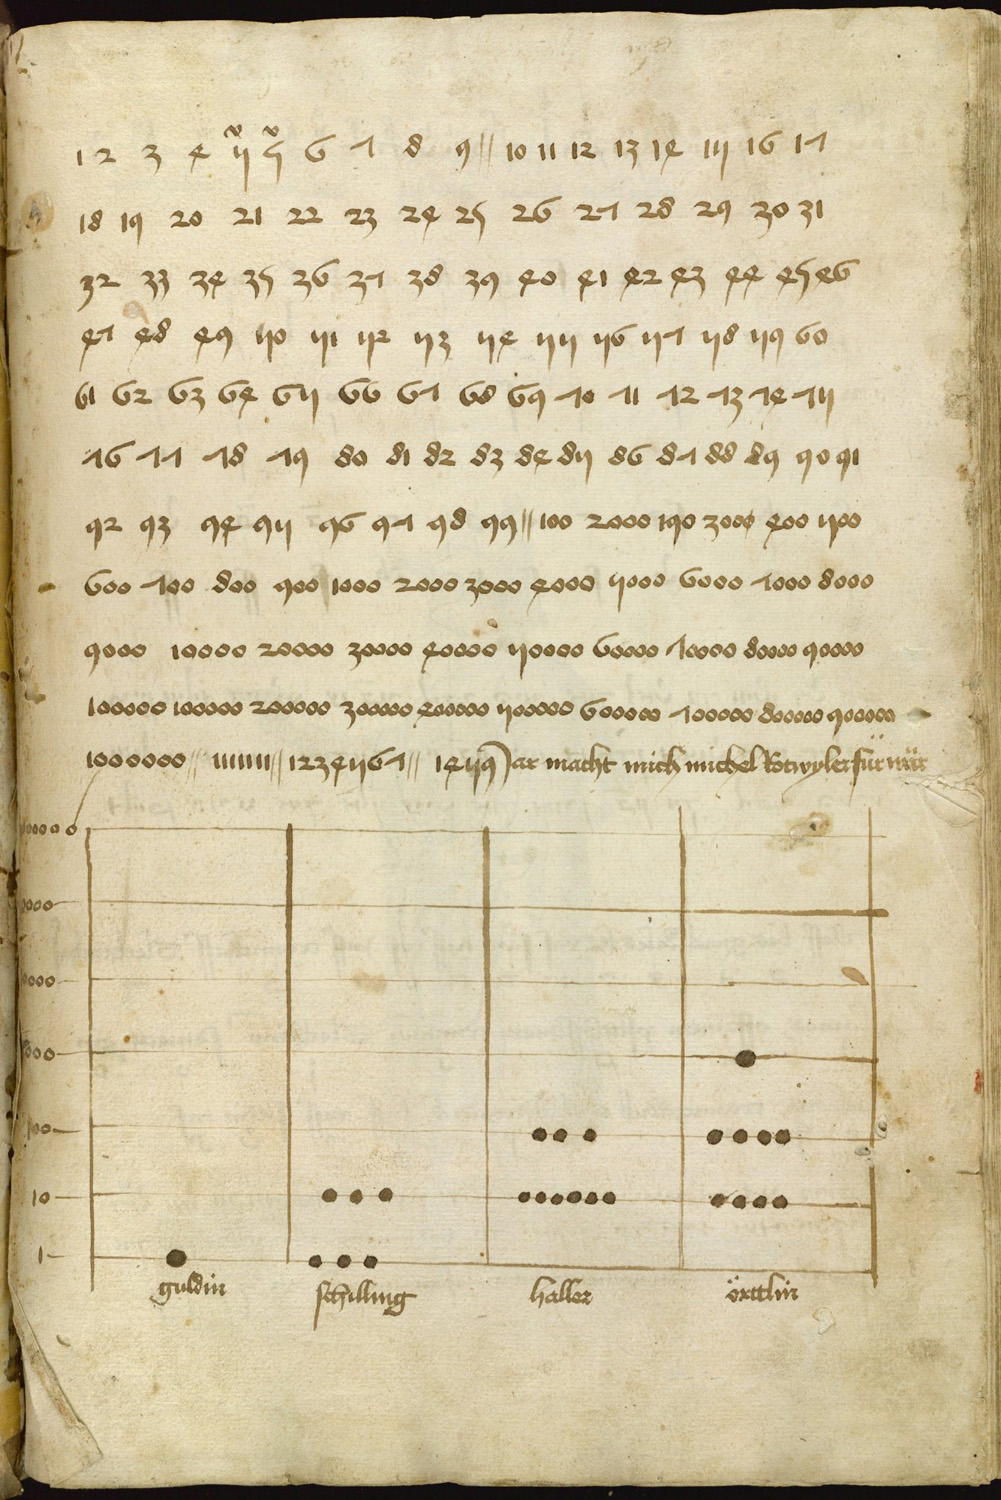 1 2 3 4 5 5 6 7 8 9 // 10 11 12 13 14 15 16 17
18 19 20 21 22 23 24 25 26 27 28 29 30 31
32 33 34 35 36 37 38 39 40 41 42 43 44 45 46
47 48 49 50 51 52 53 54 55 56 57 58 59 60
61 62 63 64 65 66 67 68 69 70 71 72 73 74 75
76 77 78 79 80 81 82 83 84 85 86 87 88 89 90 91
92 93 94 95 96 97 98 99 // 100 2000 190 3000 400 500
600 700 800 900 1000 2000 3000 4000 5000 6000 7000 8000
9000 10000 20000 30000 40000 50000 60000 70000 80000 90000
100000 100000 200000 300000 400000 500000 600000 700000 800000 900000
1000000 // 111111 // 1234567 // 1459 jar macht mich michel Rotwyler für wär
100
10
1
guldin schilling haller örttlin